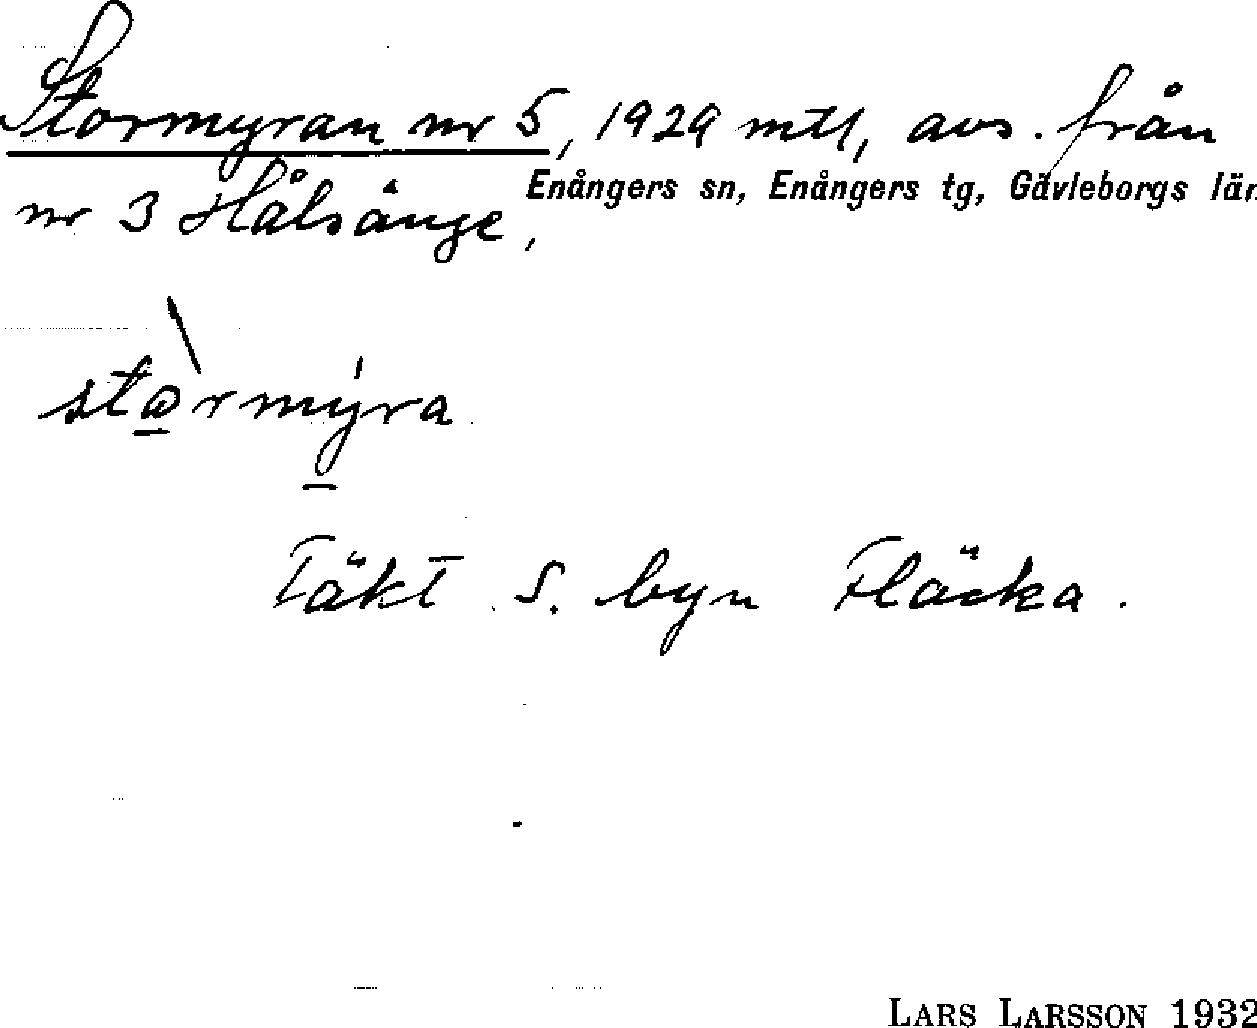 Stormyran nr 5, 1929 mtl, avs. från
Enångers sn, Enångers tg, Gävleborgs län
nr 3 Hålsänge,
stòrmýra
Täkt S. byn Fläcka.
LARS LARSSON 1932